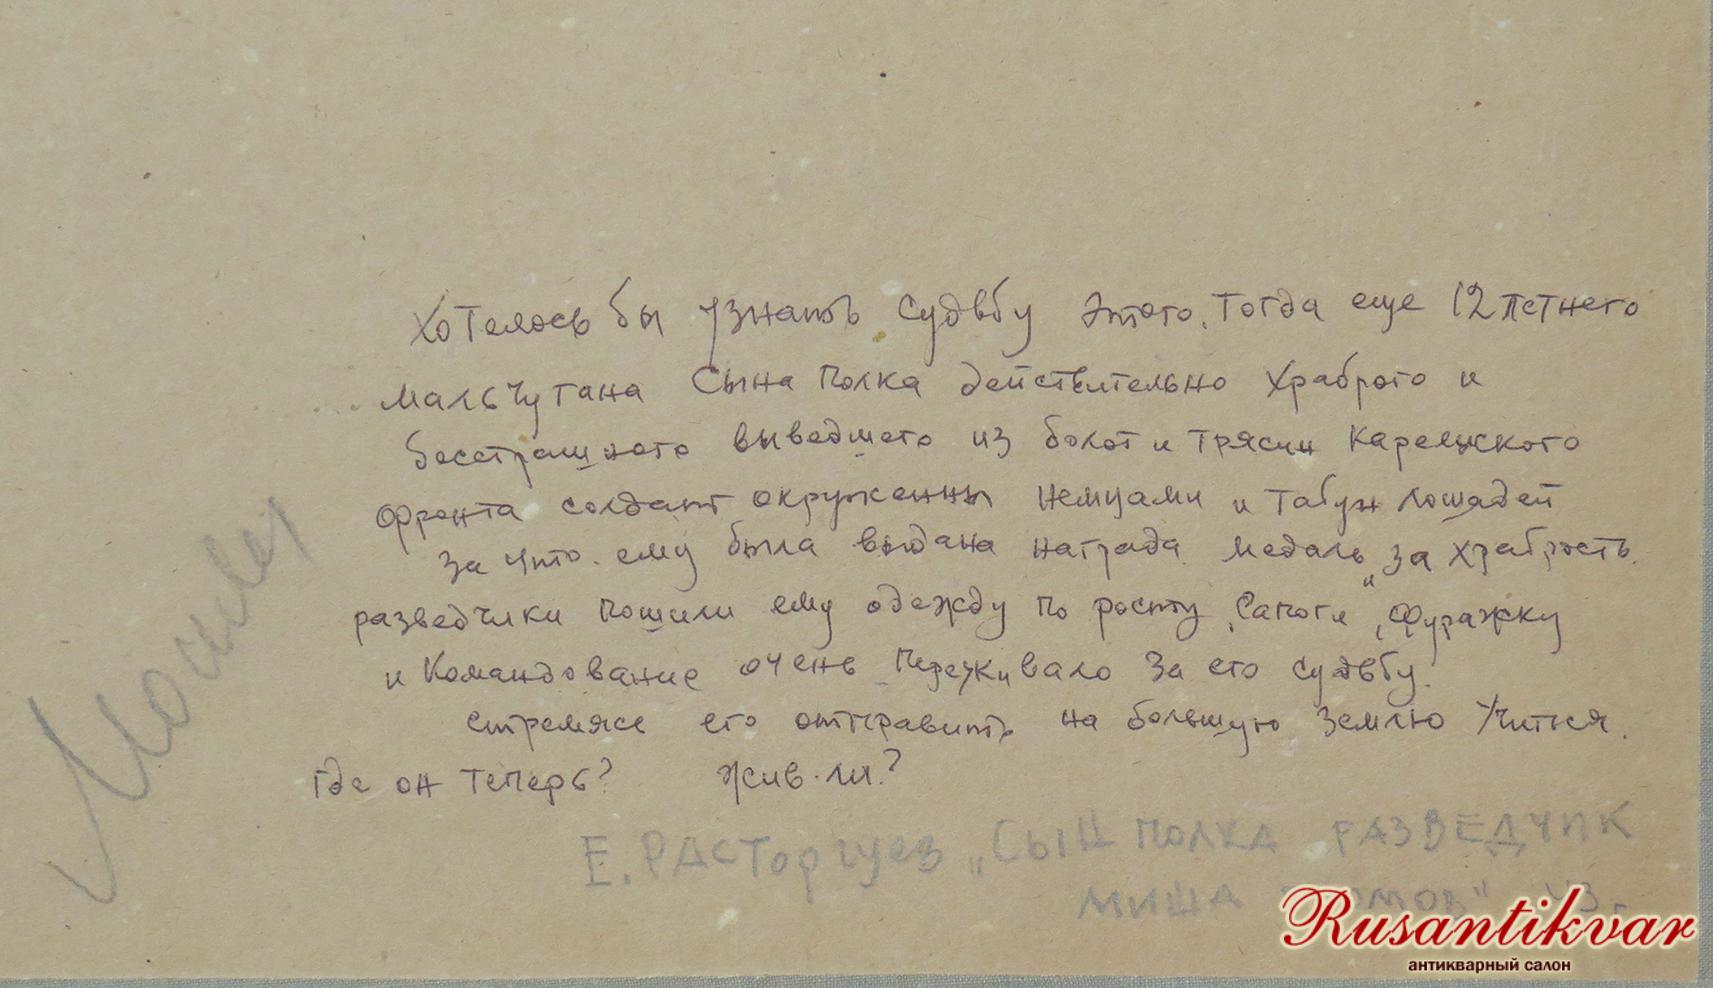 Хотелось бы узнать судьбу этого. Тогда еще 12 летнего
мальчугана Сына Полка действительно храброго и
бесстрашного выведшего из болот и трясин Карельского
фронта солдат окруженны немцами и табун лошадей
за что. ему была выдана награда медаль „за храбрость.
разведчики пошили ему одежду по росту, сапоги, фуражку
и Командование очень переживало за его судьбу.
стремясь его отправить на большую землю учится.
где он теперь? Жив. ли.?
Е. РАСТОРГУЕВ „СЫН ПОЛКА РАЗВЕДЧИК
МИША 43 г
Rusantikvar
антикварный салон